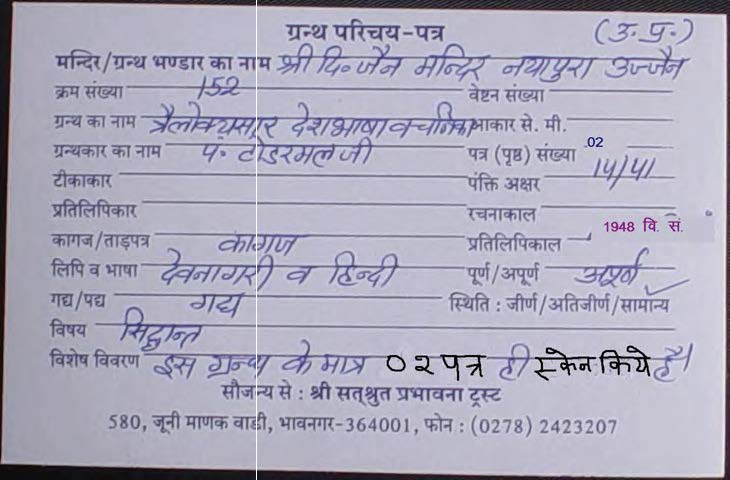 ग्रन्थ परिचय-पत्र (उ.प्र.)
मन्दिर/ग्रन्थ भण्डार का नाम श्री दि॰ जैन मन्दिर नयापुरा उज्जैन
क्रम संख्या 152 वेष्टन संख्या
ग्रन्थ का नाम त्रैलोक्यसार देशभाषा वचनिका आकार से. मी.
ग्रन्थकार का नाम पं॰ टोडरमलजी पत्र (पृष्ठ) संख्या .02
टीकाकार पंक्ति अक्षर 14/41
प्रतिलिपिकार रचनाकाल
कागज/ताड़पत्र कागज प्रतिलिपिकाल 1948 वि. सं.
लिपि व भाषा देवनागरी व हिन्दी पूर्ण/अपूर्ण अपूर्ण
गद्य/पद्य गद्य स्थिति : जीर्ण/अतिजीर्ण/सामान्य ✓
विषय सिद्धान्त
विशेष विवरण इस ग्रन्थ के मात्र ०२ पत्र ही स्केन किये है।
सौजन्य से : श्री सत्श्रुत प्रभावना ट्रस्ट
580, जूनी माणक वाडी, भावनगर-364001, फोन : (0278) 2423207